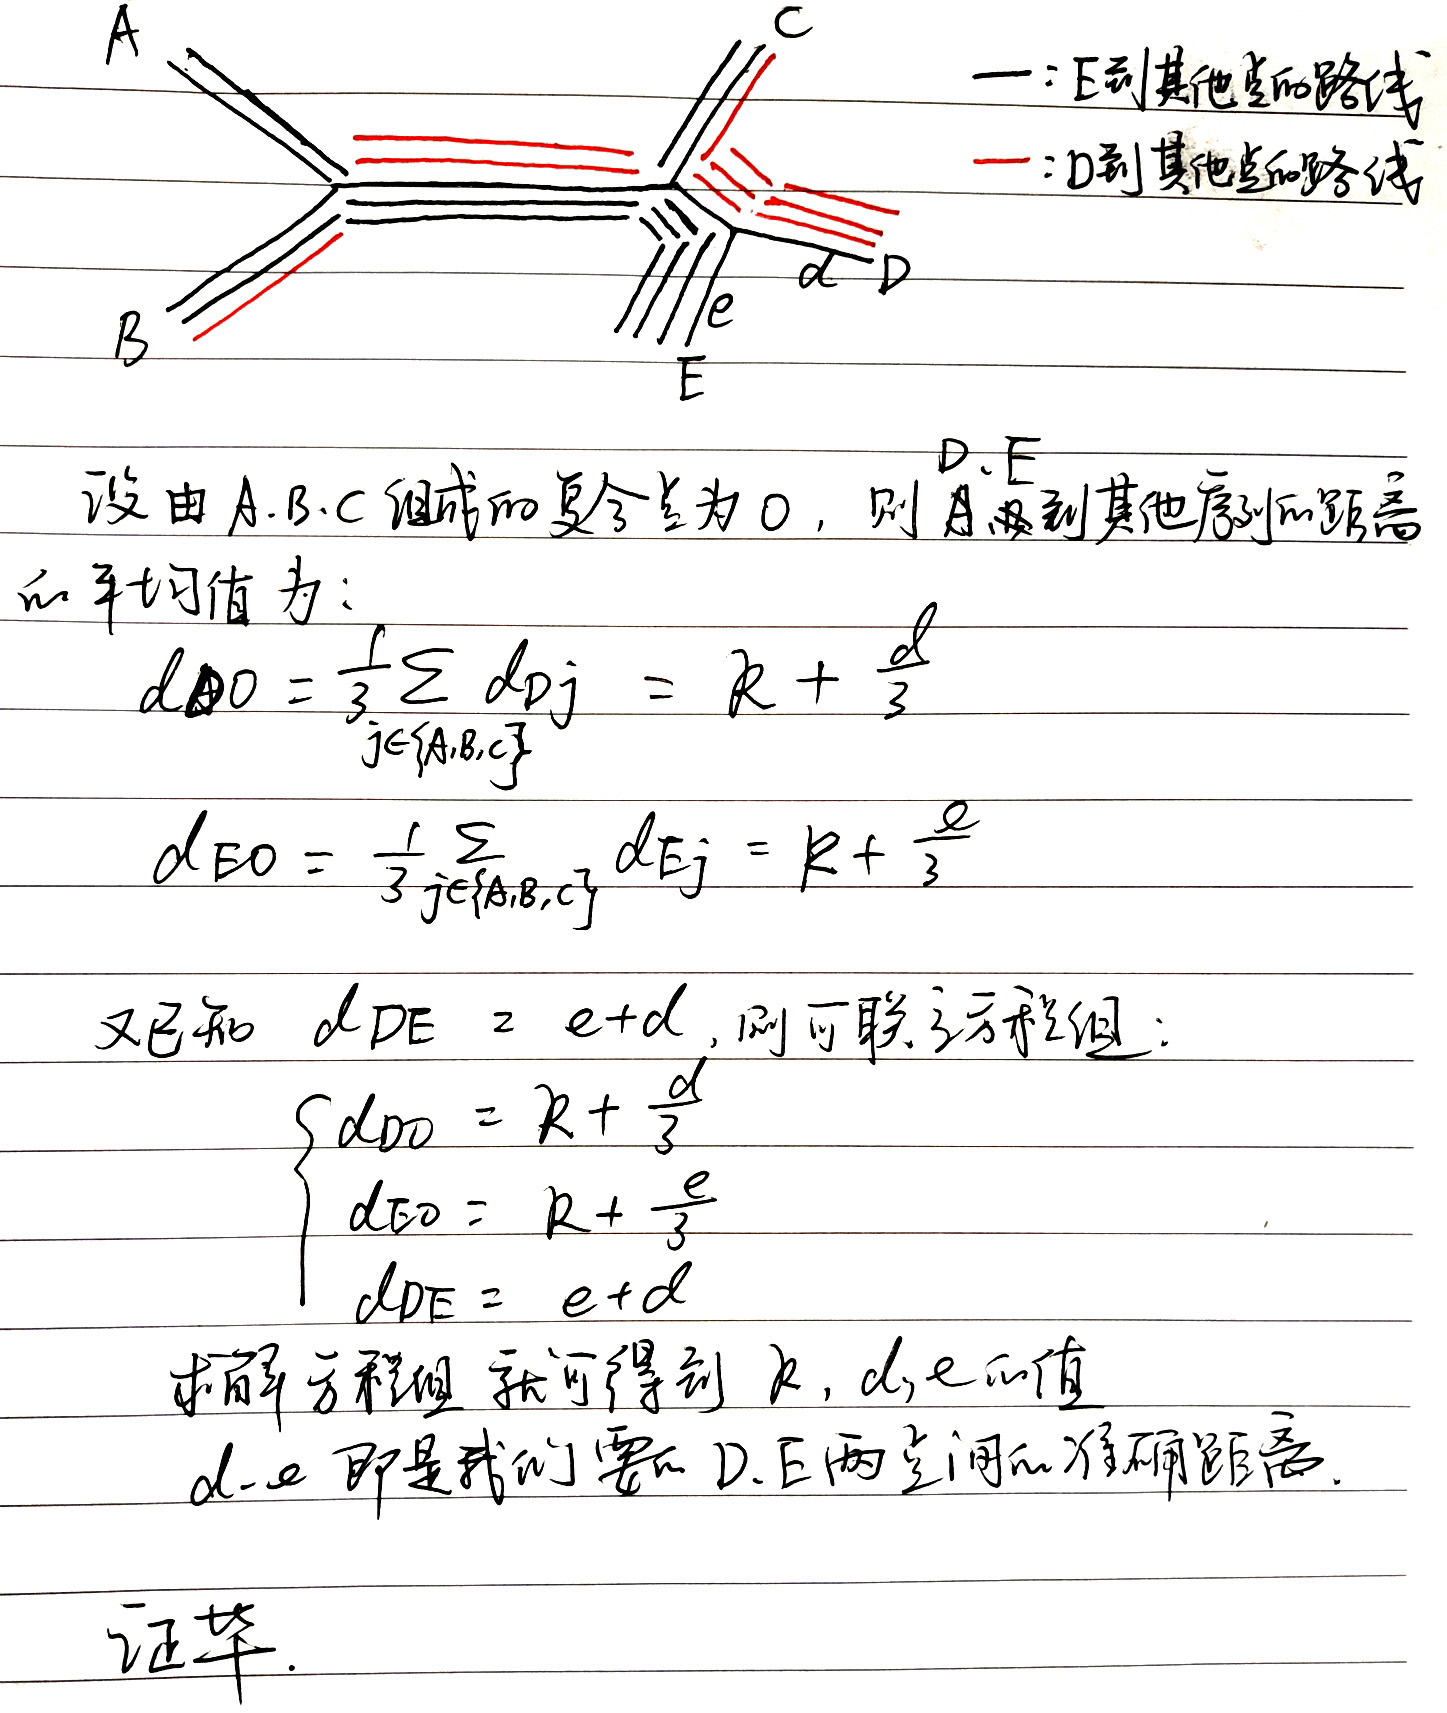 A
C
—:E到其他点的路线
—:D到其他点的路线
d D
e
B
E
D、E
设由A.B.C组成的复合点为O,则到其他序列的距离
的平均值为:
dDO = 1/3 Σ dDj = k + d/3
j∈{A,B,C}
dEO = 1/3 Σ dEj = k + e/3
j∈{A,B,C}
又已知 dDE = e+d,则可联立方程组:
{ dDO = k + d/3
dEO = k + e/3
dDE = e+d
求解方程组就可得到 k,d,e的值
d-e 即是我们要的D.E两点间的准确距离.
证毕.